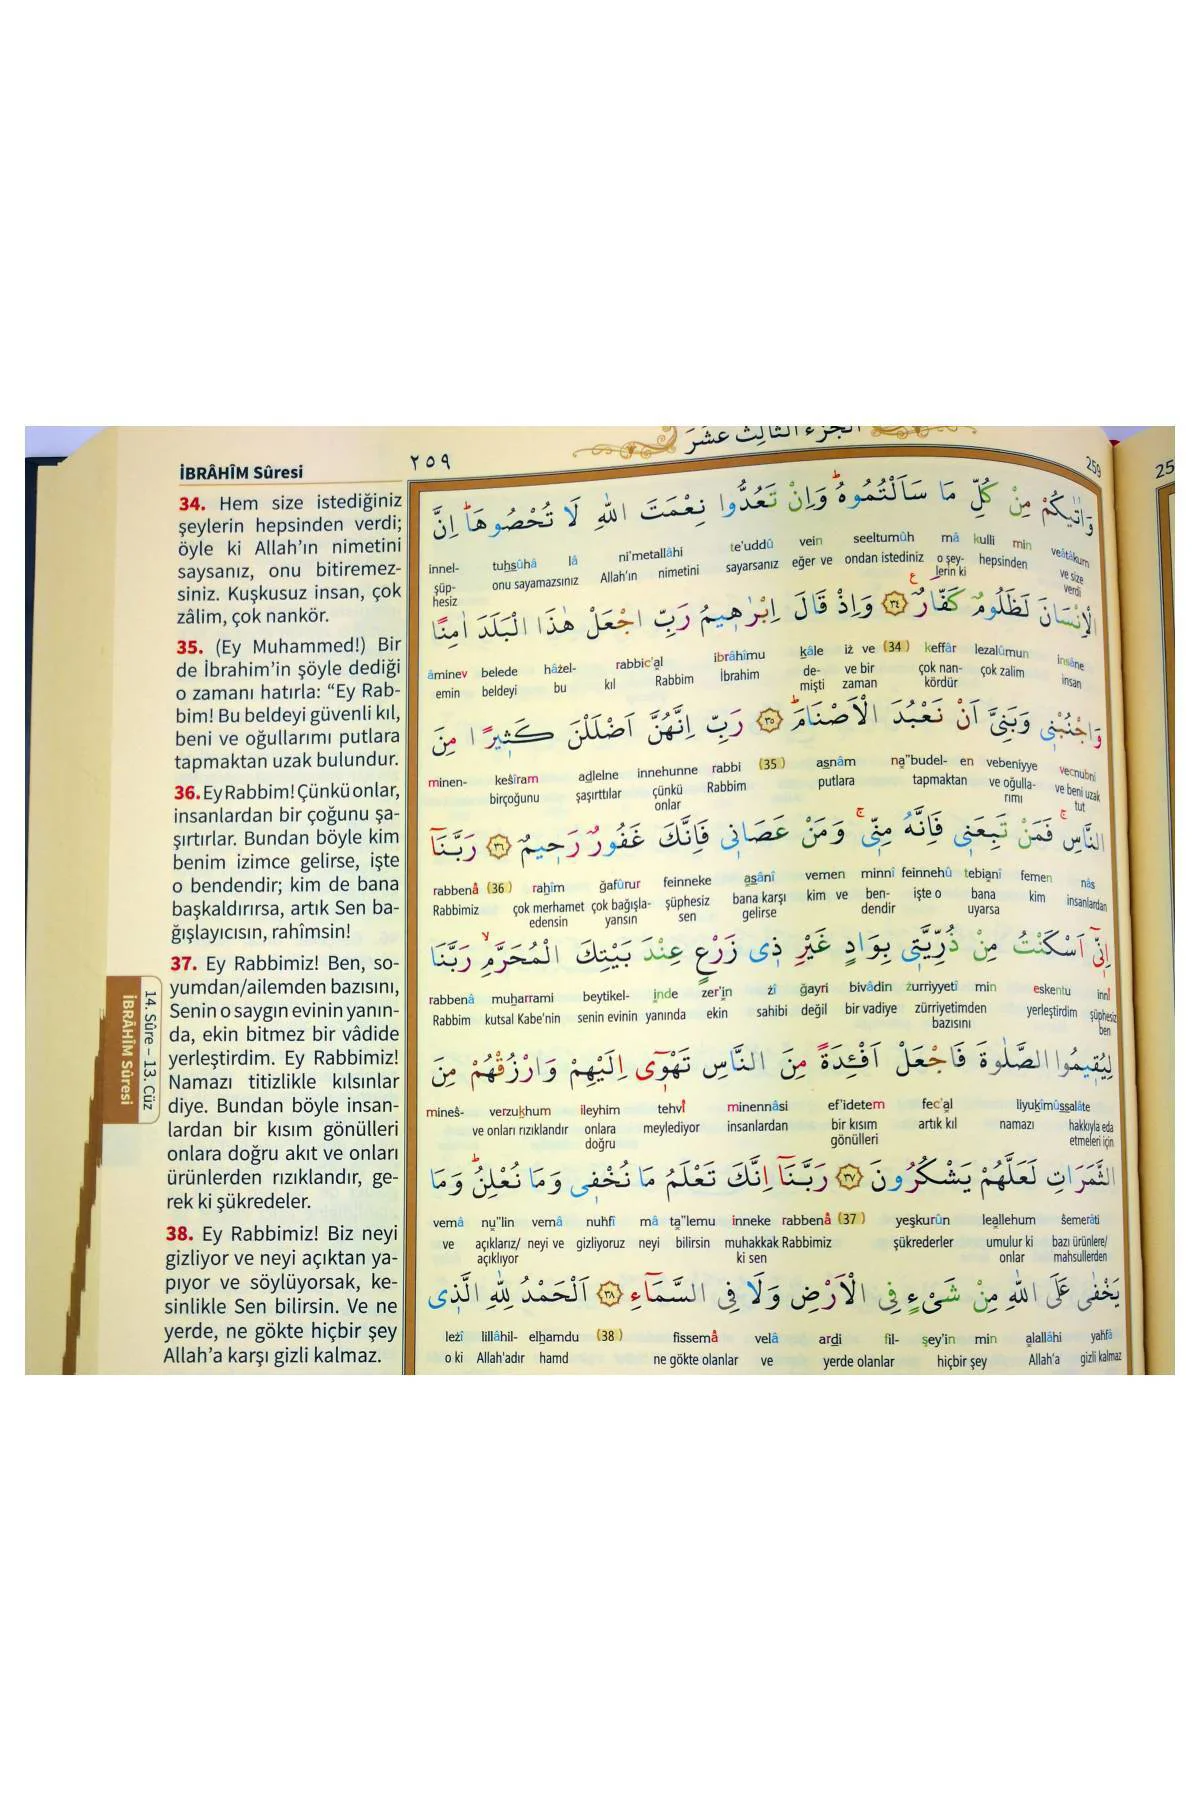 İBRÂHÎM Sûresi
34. Hem size istediğiniz
şeylerin hepsinden verdi;
öyle ki Allah’ın nimetini
saysanız, onu bitiremez-
siniz. Kuşkusuz insan, çok
zâlim, çok nankör.
35. (Ey Muhammed!) Bir
de İbrahim’in şöyle dediği
o zamanı hatırla: “Ey Rab-
bim! Bu beldeyi güvenli kıl,
beni ve oğullarımı putlara
tapmaktan uzak bulundur.
36. Ey Rabbim! Çünkü onlar,
insanlardan bir çoğunu şa-
şırtırlar. Bundan böyle kim
benim izimce gelirse, işte
o bendendir; kim de bana
başkaldırırsa, artık Sen ba-
ğışlayıcısın, rahîmsin!
37. Ey Rabbimiz! Ben, so-
yumdan/ailemden bazısını,
Senin o saygın evinin yanın-
da, ekin bitmez bir vâdide
yerleştirdim. Ey Rabbimiz!
Namazı titizlikle kılsınlar
diye. Bundan böyle insan-
lardan bir kısım gönülleri
onlara doğru akıt ve onları
ürünlerden rızıklandır, ge-
rek ki şükredeler.
38. Ey Rabbimiz! Biz neyi
gizliyor ve neyi açıktan ya-
pıyor ve söylüyorsak, ke-
sinlikle Sen bilirsin. Ve ne
yerde, ne gökte hiçbir şey
Allah’a karşı gizli kalmaz.
14. Sûre – 13. Cüz
İBRÂHÎM Sûresi
٢٥٩
الجزء الثالث عشر
259
وَاٰتٰيكُمْ مِنْ كُلِّ مَا سَاَلْتُمُوهُۜ وَاِنْ تَعُدُّوا نِعْمَتَ اللّٰهِ لَا تُحْصُوهَاۜ اِنَّ
innel- tuhsûhâ lâ ni’metallâhi te’uddû vein seeltumûh mâ kulli min veâtâkum
şüp-hesiz onu sayamazsınız Allah’ın nimetini sayarsanız eğer ve ondan istediniz o şey-lerin ki hepsinden ve size verdi
الْاِنْسَانَ لَظَلُومٌ كَفَّارٌ۟ ﴿٣٤﴾ وَاِذْ قَالَ اِبْرٰه۪يمُ رَبِّ اجْعَلْ هٰذَا الْبَلَدَ اٰمِنًا
âminev belede hâżel- rabbic’al ibrâhîmu kâle iż ve (34) keffâr lezalûmun insâne
emin beldeyi bu kıl Rabbim İbrahim de-mişti ve bir zaman çok nan-kördür çok zalim insan
وَاجْنُبْن۪ي وَبَنِيَّ اَنْ نَعْبُدَ الْاَصْنَامَۜ ﴿٣٥﴾ رَبِّ اِنَّهُنَّ اَضْلَلْنَ كَث۪يرًا مِنَ
minen- keśîram adlelne innehunne rabbi (35) asnâm na”budel- en vebeniyye vecnubnî
birçoğunu şaşırttılar çünkü onlar Rabbim putlara tapmaktan ve oğulla-rımı ve beni uzak tut
النَّاسِۚ فَمَنْ تَبِعَن۪ي فَاِنَّهُ مِنّ۪يۚ وَمَنْ عَصَان۪ي فَاِنَّكَ غَفُورٌ رَح۪يمٌ ﴿٣٦﴾ رَبَّنَٓا
rabbenâ (36) rahîm ğafûrur feinneke asânî vemen minnî feinnehû tebianî femen nâs
Rabbimiz çok merhamet edensin çok bağışla-yansın şüphesiz sen bana karşı gelirse kim ve ben-dendir işte o bana uyarsa kim insanlardan
اِنّ۪ٓي اَسْكَنْتُ مِنْ ذُرِّيَّت۪ي بِوَادٍ غَيْرِ ذ۪ي زَرْعٍ عِنْدَ بَيْتِكَ الْمُحَرَّمِۙ رَبَّنَا
rabbenâ muharrami beytikel- inde zer’in żî ğayri bivâdin żurriyyetî min eskentu innî
Rabbim kutsal Kabe’nin senin evinin yanında ekin sahibi değil bir vadiye zürriyetimden bazısını yerleştirdim şüphesiz ben
لِيُق۪يمُوا الصَّلٰوةَ فَاجْعَلْ اَفْـِٔدَةً مِنَ النَّاسِ تَهْو۪ٓي اِلَيْهِمْ وَارْزُقْهُمْ مِنَ
mineś- verzukhum ileyhim tehvî minennâsi ef’idetem fec’al liyukîmûssalâte
ve onları rızıklandır onlara doğru meylediyor insanlardan bir kısım gönülleri artık kıl namazı hakkıyla eda etmeleri için
الثَّمَرَاتِ لَعَلَّهُمْ يَشْكُرُونَ ﴿٣٧﴾ رَبَّنَٓا اِنَّكَ تَعْلَمُ مَا نُخْف۪ي وَمَا نُعْلِنُۜ وَمَا
vemâ nu”lin vemâ nuhfî mâ ta”lemu inneke rabbenâ (37) yeşkurûn leallehum śemerâti
ve açıklarız/açıklıyor neyi ve gizliyoruz neyi bilirsin muhakkak ki sen Rabbimiz şükrederler umulur ki onlar bazı ürünlere/mahsullerden
يَخْفٰى عَلَى اللّٰهِ مِنْ شَيْءٍ فِي الْاَرْضِ وَلَا فِي السَّمَٓاءِ ﴿٣٨﴾ اَلْحَمْدُ لِلّٰهِ الَّذ۪ي
leżî lillâhil- elhamdu (38) fissemâ velâ ardi fil- şey’in min alallâhi yahfâ
o ki Allah’adır hamd ne gökte olanlar ve yerde olanlar hiçbir şey Allah’a gizli kalmaz